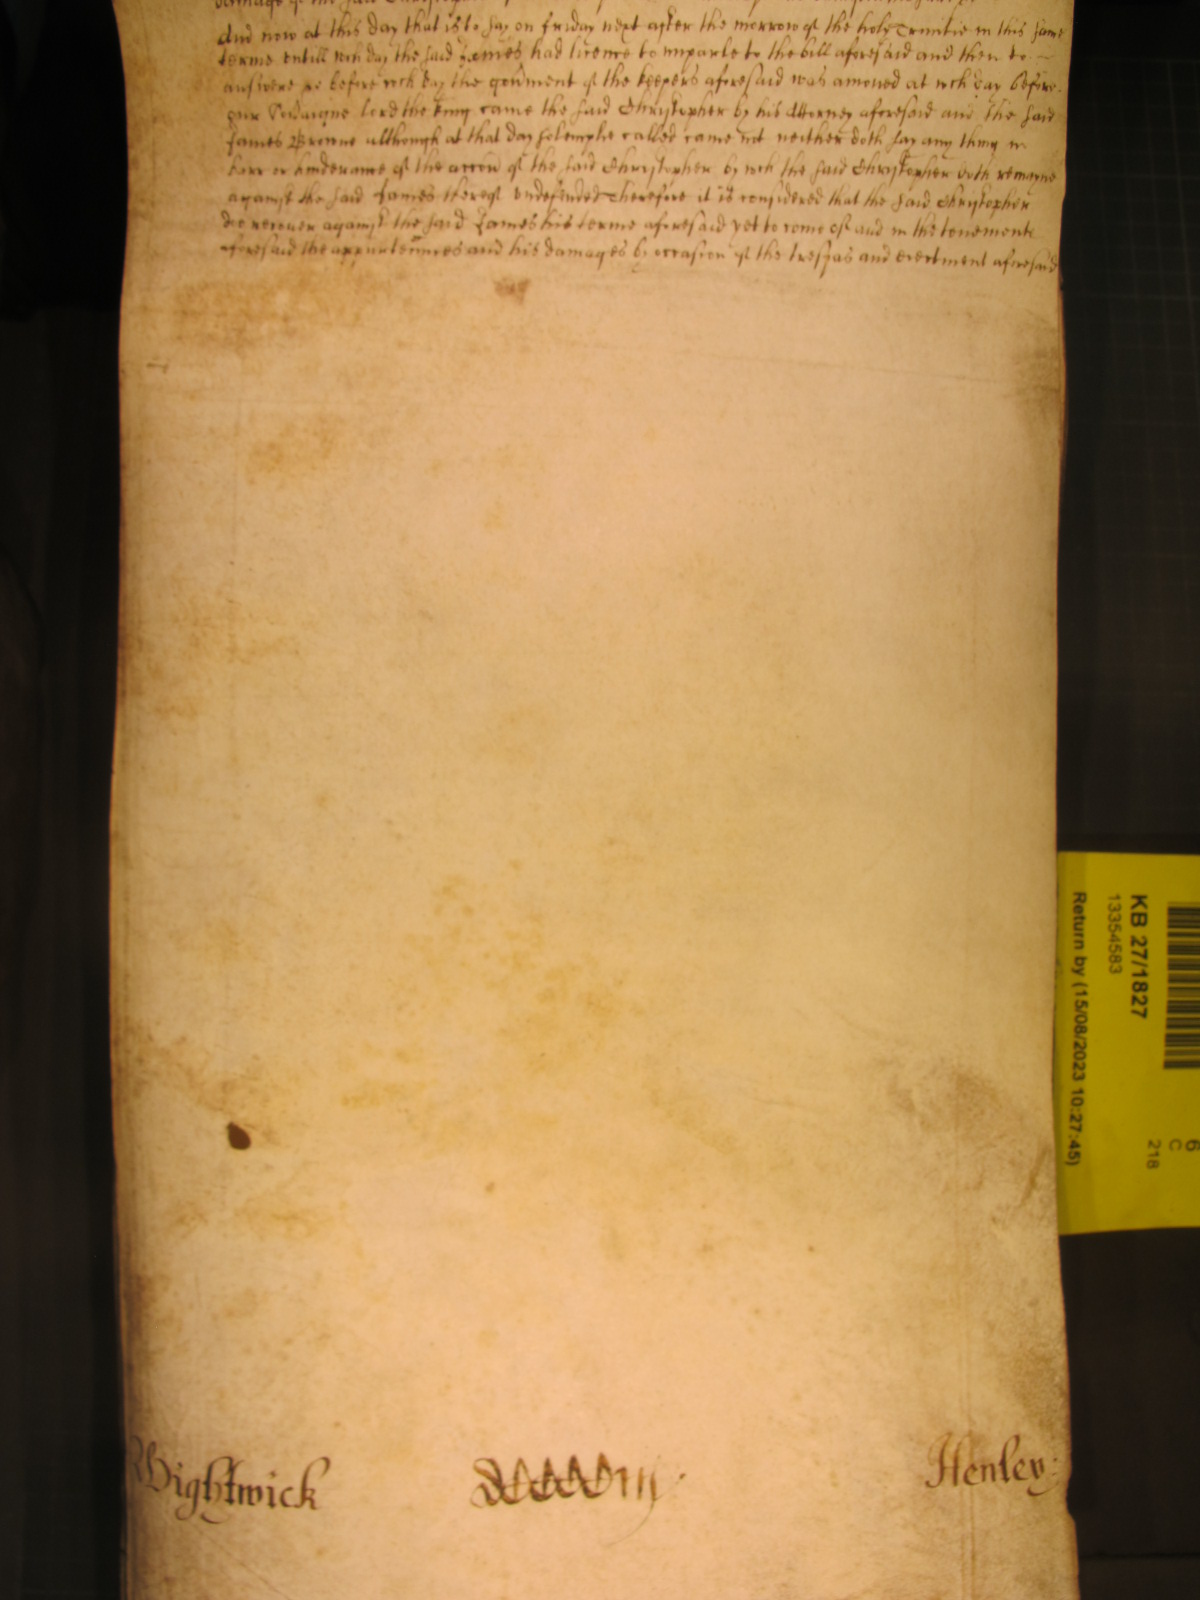 damage of the said Christopher
And now at this day that is to say on friday next after the morrow of the holy Trinitie in this same
terme untill wch day the said James had licence to imparle to the bill aforesaid and then to
answere &c before wch day the govment of the keepers aforesaid was amoved at wch day before
our Soveraigne lord the king came the said Christopher by his Attorney aforesaid and the said
James Browne although at that day solemplie called came not neither doth say any thing in
barr or hinderance of the accon of the said Christopher by wch the said Christopher doth remayne
against the said James thereof undefended Therefore it is considered that the said Christopher
doe recover against the said James his terme aforesaid yet to come of and in the tenements
aforesaid the appurtennces and his damages by occasion of the trespas and eiectment aforesaid
Wightwick
Henley
KB 27/1827
13354583
Return by (15/08/2023 10:27:45)
6
C
218